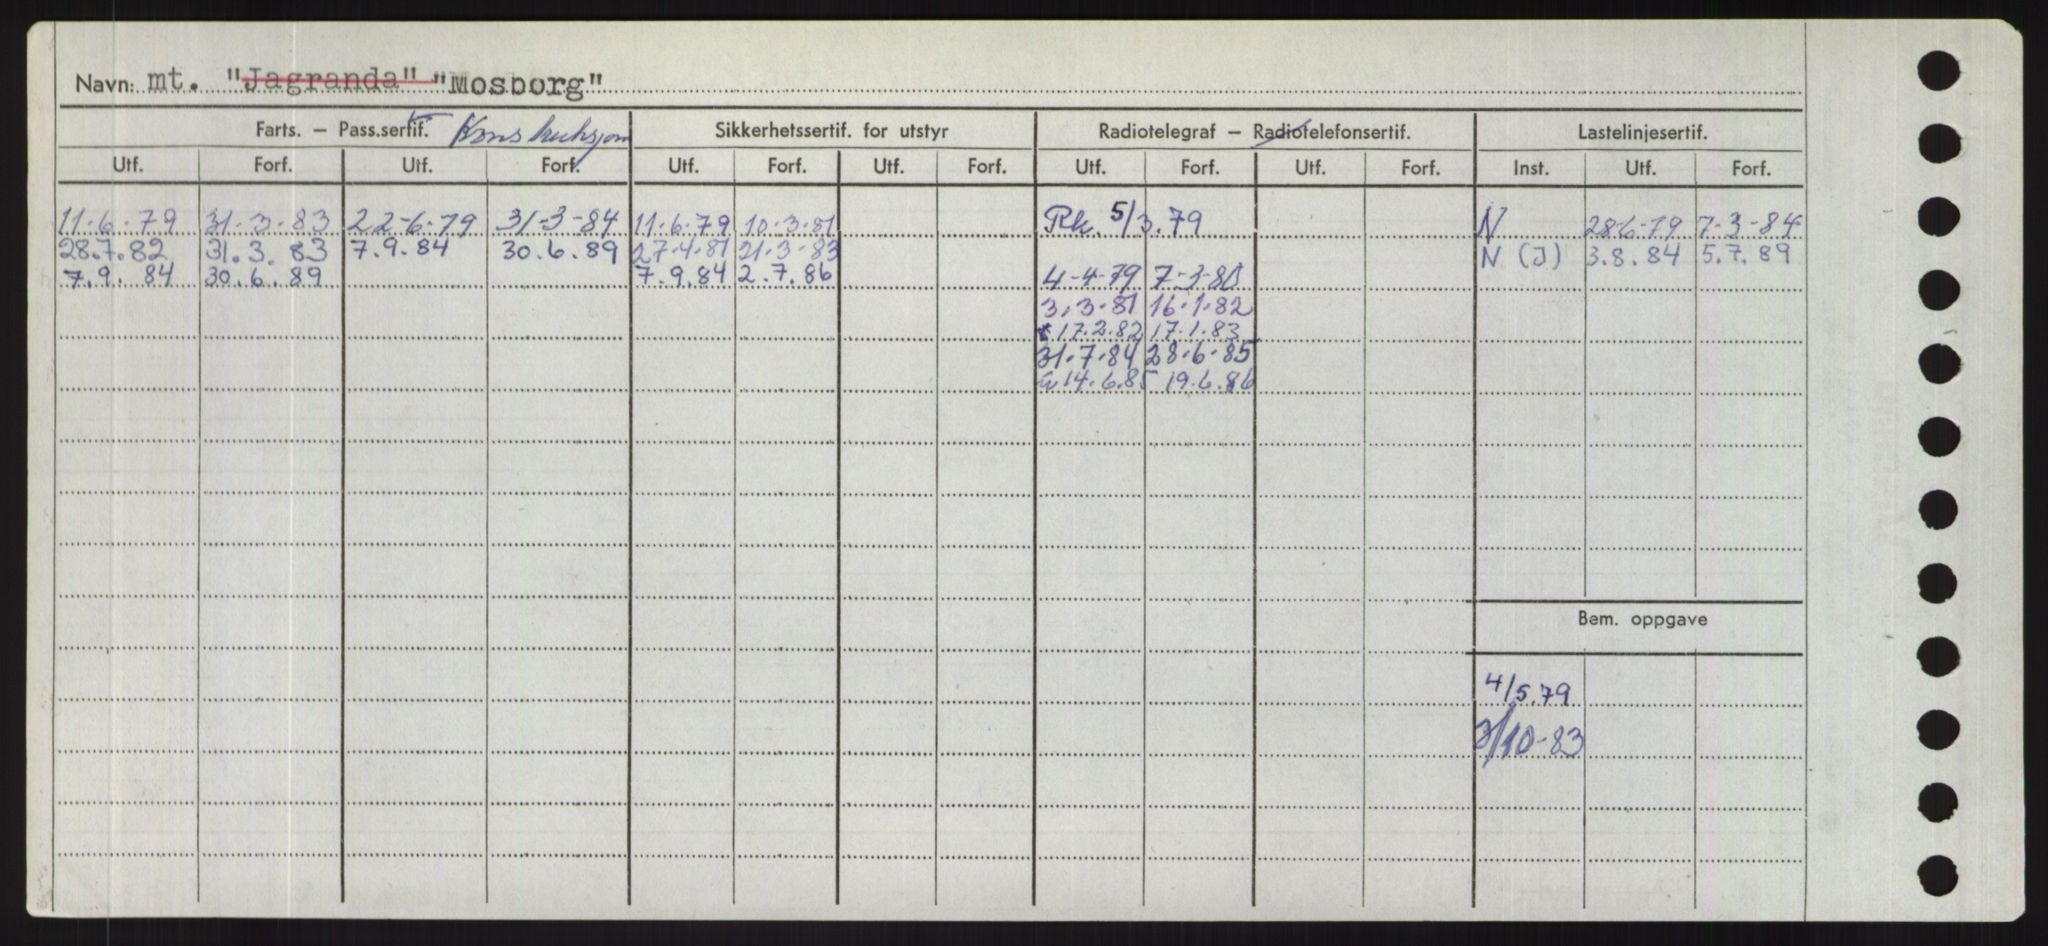 Navn: mt. "Jagranda" "Mosborg"
Farts. – Pass.sertif. Konstruksjon Sikkerhetssertif. for utstyr Radiotelegraf – Radiotelefonsertif. Lastelinjesertif.
Utf. Forf. Utf. Forf. Utf. Forf. Utf. Forf. Utf. Forf. Utf. Forf. Inst. Utf. Forf.
11.6.79 31.3.83 22-6-79 31-3-84 11.6.79 10.3.81 Rk. 5/3.79 N 28-6-79 7-3-84
28.7.82 31.3.83 7.9.84 30.6.89 27.4.81 21.3.83 N (J) 3.8.84 5.7.89
7.9.84 30.6.89 7.9.84 2.7.86 4-4-79 7-3-80
3.3.81 16.1.82
17.2.82 17.1.83
31.7.84 28.6.85
14.6.85 19.6.86
Bem. oppgave
4/5.79
3/10-83